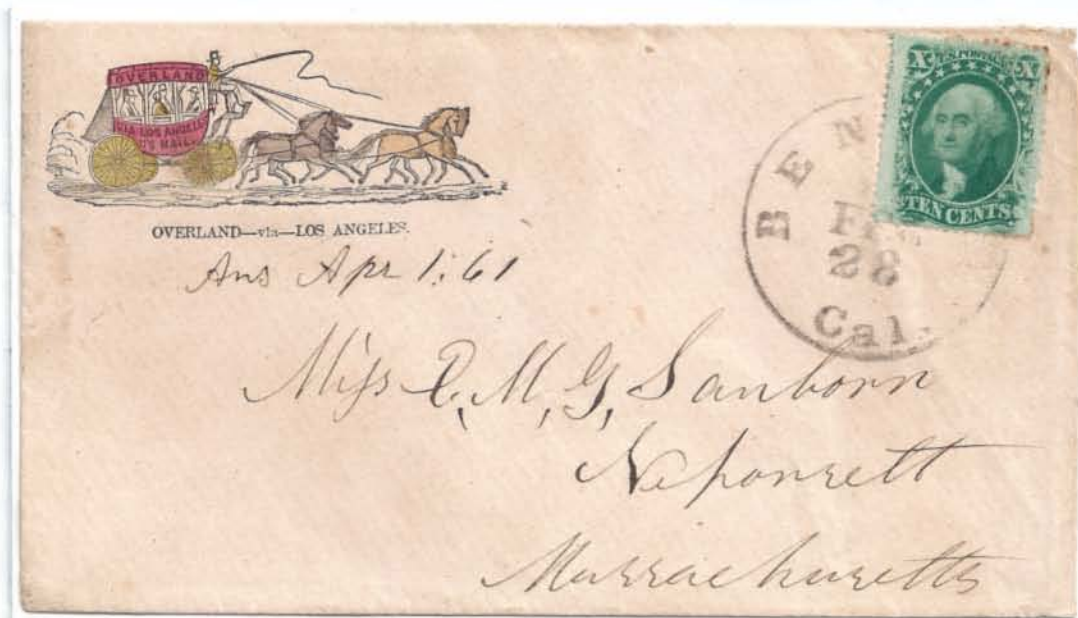 OVERLAND
VIA LOS ANGELES
US MAIL.
OVERLAND—via—LOS ANGELES.
Ans Apr 1. 61
X U.S. POSTAGE X
TEN CENTS
BEN
28
Cal.
Miss C, M, G, Sanborn
Neponsett
Massachusetts